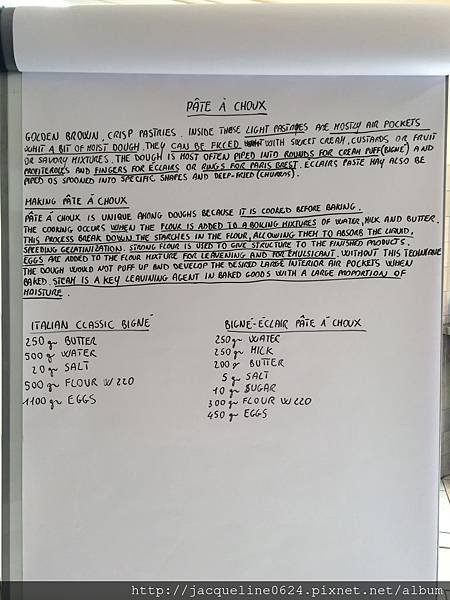 PÂTE À CHOUX
GOLDEN BROWN, CRISP PASTRIES. INSIDE THESE LIGHT PASTRIES ARE MOSTLY AIR POCKETS
WHIT A BIT OF MOIST DOUGH. THEY CAN BE FILLED WITH SWEET CREAM, CUSTARDS OR FRUIT
OR SAVORY MIXTURES. THE DOUGH IS MOST OFTEN PIPED INTO ROUNDS FOR CREAM PUFF (BIGNÈ) AND
PROFITEROLES AND FINGERS FOR ÉCLAIRS OR RINGS FOR PARIS BREST. ECLAIRS PASTE MAY ALSO BE
PIPED OS SPOONED INTO SPECIFIC SHAPES AND DEEP-FRIED (CHURROS).
MAKING PÂTE À CHOUX
PÂTE À CHOUX IS UNIQUE AMONG DOUGHS BECAUSE IT IS COOKED BEFORE BAKING.
THE COOKING OCCURS WHEN THE FLOUR IS ADDED TO A BOILING MIXTURES OF WATER, MILK AND BUTTER.
THIS PROCESS BREAK DOWN THE STARCHES IN THE FLOUR, ALLOWING THEM TO ABSORB THE LIQUID,
SPEEDING GELATINIZATION. STRONG FLOUR IS USED TO GIVE STRUCTURE TO THE FINISHED PRODUCTS.
EGGS ARE ADDED TO THE FLOUR MIXTURE FOR LEAVENING AND FOR EMULSICANT. WITHOUT THIS TECHNIQUE
THE DOUGH WOULD NOT PUFF UP AND DEVELOP THE DESIRED LARGE INTERIOR AIR POCKETS WHEN
BAKED. STEAM IS A KEY LEAVINING AGENT IN BAKED GOODS WITH A LARGE MOPORTION OF
MOISTURE.
ITALIAN CLASSIC BIGNÈ
250 gr BUTTER
500 gr WATER
20 gr SALT
500 gr FLOUR W220
1100 gr EGGS
BIGNÈ-ÉCLAIR PÂTE À CHOUX
250 gr WATER
250 gr MILK
200 gr BUTTER
5 gr SALT
10 gr SUGAR
300 gr FLOUR W220
450 gr EGGS
http://jacqueline0624.pixnet.net/album